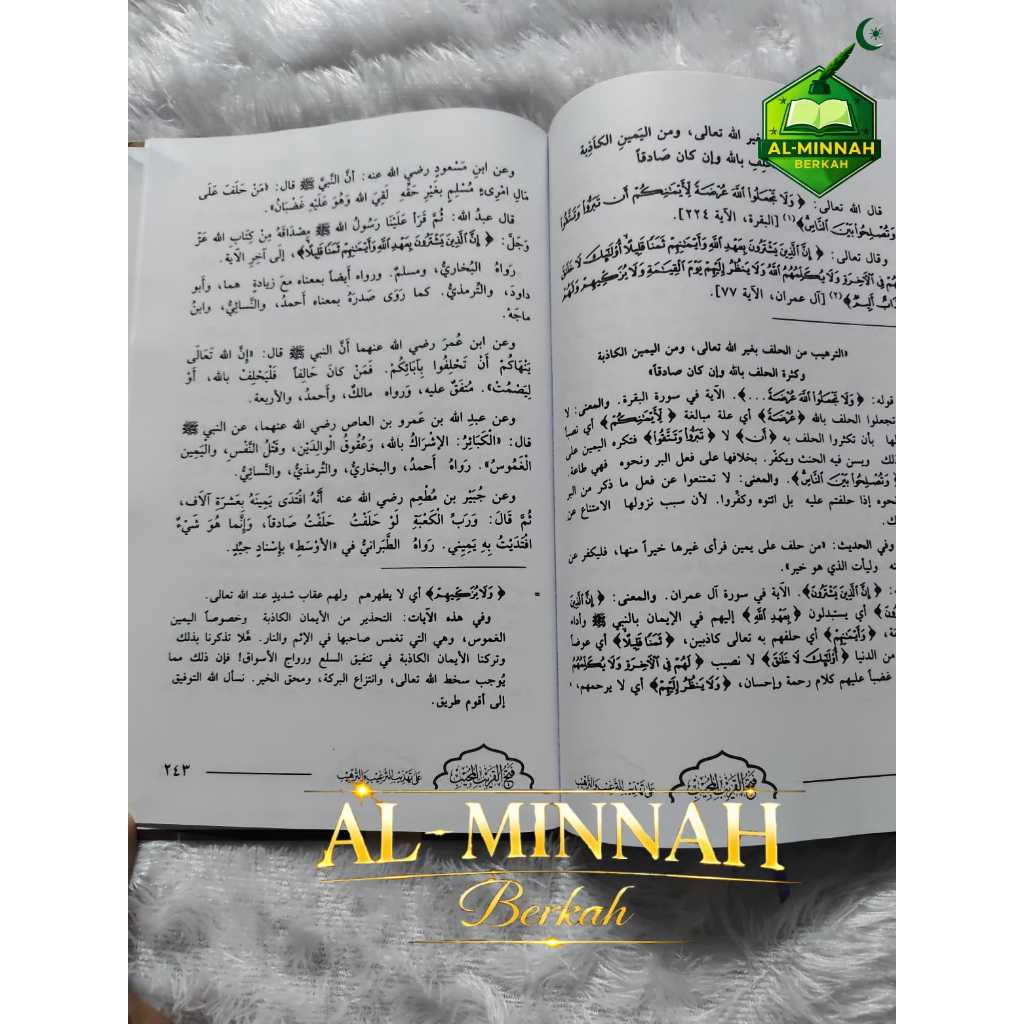 AL-MINNAH
BERKAH
بغير الله تعالى، ومن اليَمينِ الكاذِبة
بالله وإن كان صَادقاً
قال الله تعالى: ﴿وَلَا تَجْعَلُوا اللَّهَ عُرْضَةً لِأَيْمَانِكُمْ أَن تَبَرُّوا وَتَتَّقُوا
وَتُصْلِحُوا بَيْنَ النَّاسِ﴾(١) [البقرة، الآية ٢٢٤].
وقال تعالى: ﴿إِنَّ الَّذِينَ يَشْتَرُونَ بِعَهْدِ اللَّهِ وَأَيْمَانِهِمْ ثَمَنًا قَلِيلًا أُوْلَئِكَ لَا خَلَاقَ
فِي الْآخِرَةِ وَلَا يُكَلِّمُهُمُ اللَّهُ وَلَا يَنظُرُ إِلَيْهِمْ يَوْمَ الْقِيَامَةِ وَلَا يُزَكِّيهِمْ وَلَهُمْ
أَلِيمٌ﴾(٢) [آل عمران، الآية ٧٧].
«الترهيب من الحلف بغير الله تعالى، ومن اليمين الكاذبة
وكثرة الحلف بالله وإن كان صادقاً»
قوله: ﴿وَلَا تَجْعَلُوا اللَّهَ عُرْضَةً ...﴾. الآية في سورة البقرة. والمعنى: لا
تجعلوا الحلف بالله ﴿عُرْضَةً﴾ أي علة مبالغة ﴿لِأَيْمَانِكُمْ﴾ أي نصباً
بأن تكثروا الحلف به ﴿أَن﴾ لا ﴿تَبَرُّوا وَتَتَّقُوا﴾ فتكره اليمين على
ويسن فيه الحنث ويكفّر. بخلافها على فعل البر ونحوه فهي طاعة
﴿وَتُصْلِحُوا بَيْنَ النَّاسِ﴾. والمعنى: لا تمتنعوا عن فعل ما ذكر من البر
إذا حلفتم عليه بل ائتوه وكفّروا. لأن سبب نزولها الامتناع عن
وفي الحديث: «من حلف على يمين فرأى غيرها خيراً منها، فليكفر عن
وليأت الذي هو خير».
﴿إِنَّ الَّذِينَ يَشْتَرُونَ﴾. الآية في سورة آل عمران. والمعنى: ﴿إِنَّ الَّذِينَ
أي يستبدلون ﴿بِعَهْدِ اللَّهِ﴾ إليهم في الإيمان بالنبي ﷺ وأداء
﴿وَأَيْمَانِهِمْ﴾ أي حلفهم به تعالى كاذبين، ﴿ثَمَنًا قَلِيلًا﴾ أي عوضاً
من الدنيا ﴿أُوْلَئِكَ لَا خَلَاقَ﴾ لا نصيب ﴿لَهُمْ فِي الْآخِرَةِ وَلَا يُكَلِّمُهُمُ
غضباً عليهم كلام رحمة وإحسان، ﴿وَلَا يَنظُرُ إِلَيْهِمْ﴾ أي لا يرحمهم،
فتح القريب المجيب
على تهذيب الترغيب والترهيب
وعن ابنِ مَسْعودٍ رضي الله عنه: أنَّ النَّبيَّ ﷺ قال: «مَنْ حَلَفَ عَلَى
مَالِ امْرِىءٍ مُسْلِمٍ بِغَيْرِ حَقِّهِ لَقِيَ اللهَ وَهُوَ عَلَيْهِ غَضْبَانُ».
قال عبدُ الله: ثُمَّ قَرَأَ عَلَيْنَا رَسُولُ الله ﷺ مِصْدَاقَهُ مِنْ كِتَابِ الله عَزَّ
وَجَلَّ: ﴿إِنَّ الَّذِينَ يَشْتَرُونَ بِعَهْدِ اللَّهِ وَأَيْمَانِهِمْ ثَمَنًا قَلِيلًا﴾، إلَى آخِرِ الآيَة.
رَوَاهُ البُخاريُّ، ومسلم. ورواه أيضاً بمعناه معَ زيادةٍ هما، وأبو
داودَ، والتِّرمذيُّ. كما رَوَى صَدرَهُ بمعناه أحمدُ، والنَّسائيُّ، وابنُ
ماجَهْ.
وعن ابن عُمرَ رضي الله عنهما أنَّ النبي ﷺ قال: «إنَّ اللهَ تَعَالَى
يَنْهَاكُمْ أَنْ تَحْلِفُوا بِآبَائِكُمْ. فَمَنْ كانَ حَالِفاً فَلْيَحْلِفْ بالله، أَوْ
لِيَصْمُتْ». متفَقٌ عليه، ورواه مالكٌ، وأحمدُ، والأربعة.
وعن عبدِ الله بن عَمرو بن العاص رضي الله عنهما، عن النبي ﷺ
قال: «الْكَبَائِرُ: الإشْرَاكُ بالله، وَعُقُوقُ الْوالِدَيْنِ، وَقَتْلُ النَّفْسِ، وَالْيَمِين
الْغَمُوسُ». رَوَاهُ أحمدُ، والبخاريُّ، والتِّرمذيُّ، والنَّسائيُّ.
وعن جُبَيْر بن مُطْعِم رضي الله عنه أَنَّهُ افْتَدَى يَمِينَهُ بِعَشْرَةِ آلاف،
ثُمَّ قَالَ: وَرَبِّ الْكَعْبَةِ لَوْ حَلَفْتُ حَلَفْتُ صَادقاً، وَإِنَّما هُوَ شَيْءٌ
افْتَدَيْتُ بِهِ يَمِيني. رَوَاهُ الطَّبَرانيُّ في «الأوْسَطِ» بإسْنادٍ جيِّدٍ.
= ﴿وَلَا يُزَكِّيهِمْ﴾ أي لا يطهرهم ولهم عقاب شديدٍ عند الله تعالى.
وفي هذه الآيات: التحذير من الأيمان الكاذبة وخصوصاً اليمين
الغموس، وهي التي تغمس صاحبها في الإثم والنار. هَّلا تذكرنا بذلك
وتركنا الأيمان الكاذبة في تنفيق السلع ورواج الأسواق! فإن ذلك مما
يُوجب سخط الله تعالى، وانتزاع البركة، ومحق الخير. نسأل الله التوفيق
إلى أقوم طريق.
فتح القريب المجيب
على تهذيب الترغيب والترهيب
٢٤٣
AL-MINNAH
Berkah